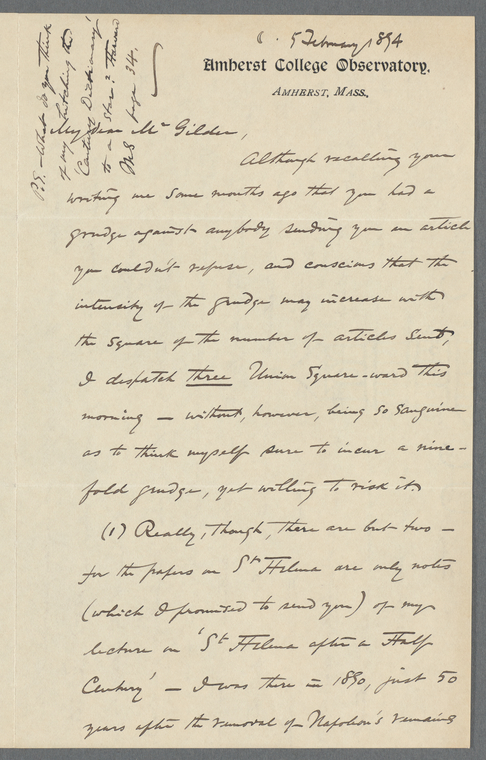 5 February 1894
Amherst College Observatory,
Amherst, Mass.
My dear Mr Gilder,
Although recalling your
writing me some months ago that you had a
grudge against anybody sending you an article
you couldn't refuse, and conscious that the
intensity of the grudge may increase with
the square of the number of articles sent,
I despatch three Union Square-ward this
morning — without, however, being so sanguine
as to think myself sure to incur a nine-
fold grudge, yet willing to risk it.
(1) Really, though, there are but two —
for the papers on St Helena are only notes
(which I promised to send you) of my
lecture on 'St Helena after a Half
Century' — I was there in 1890, just 50
years after the removal of Napoleon's remains
P.S. — What do you think
of my hitching the
'Century Dictionary'
to a Star?
MS page 34.